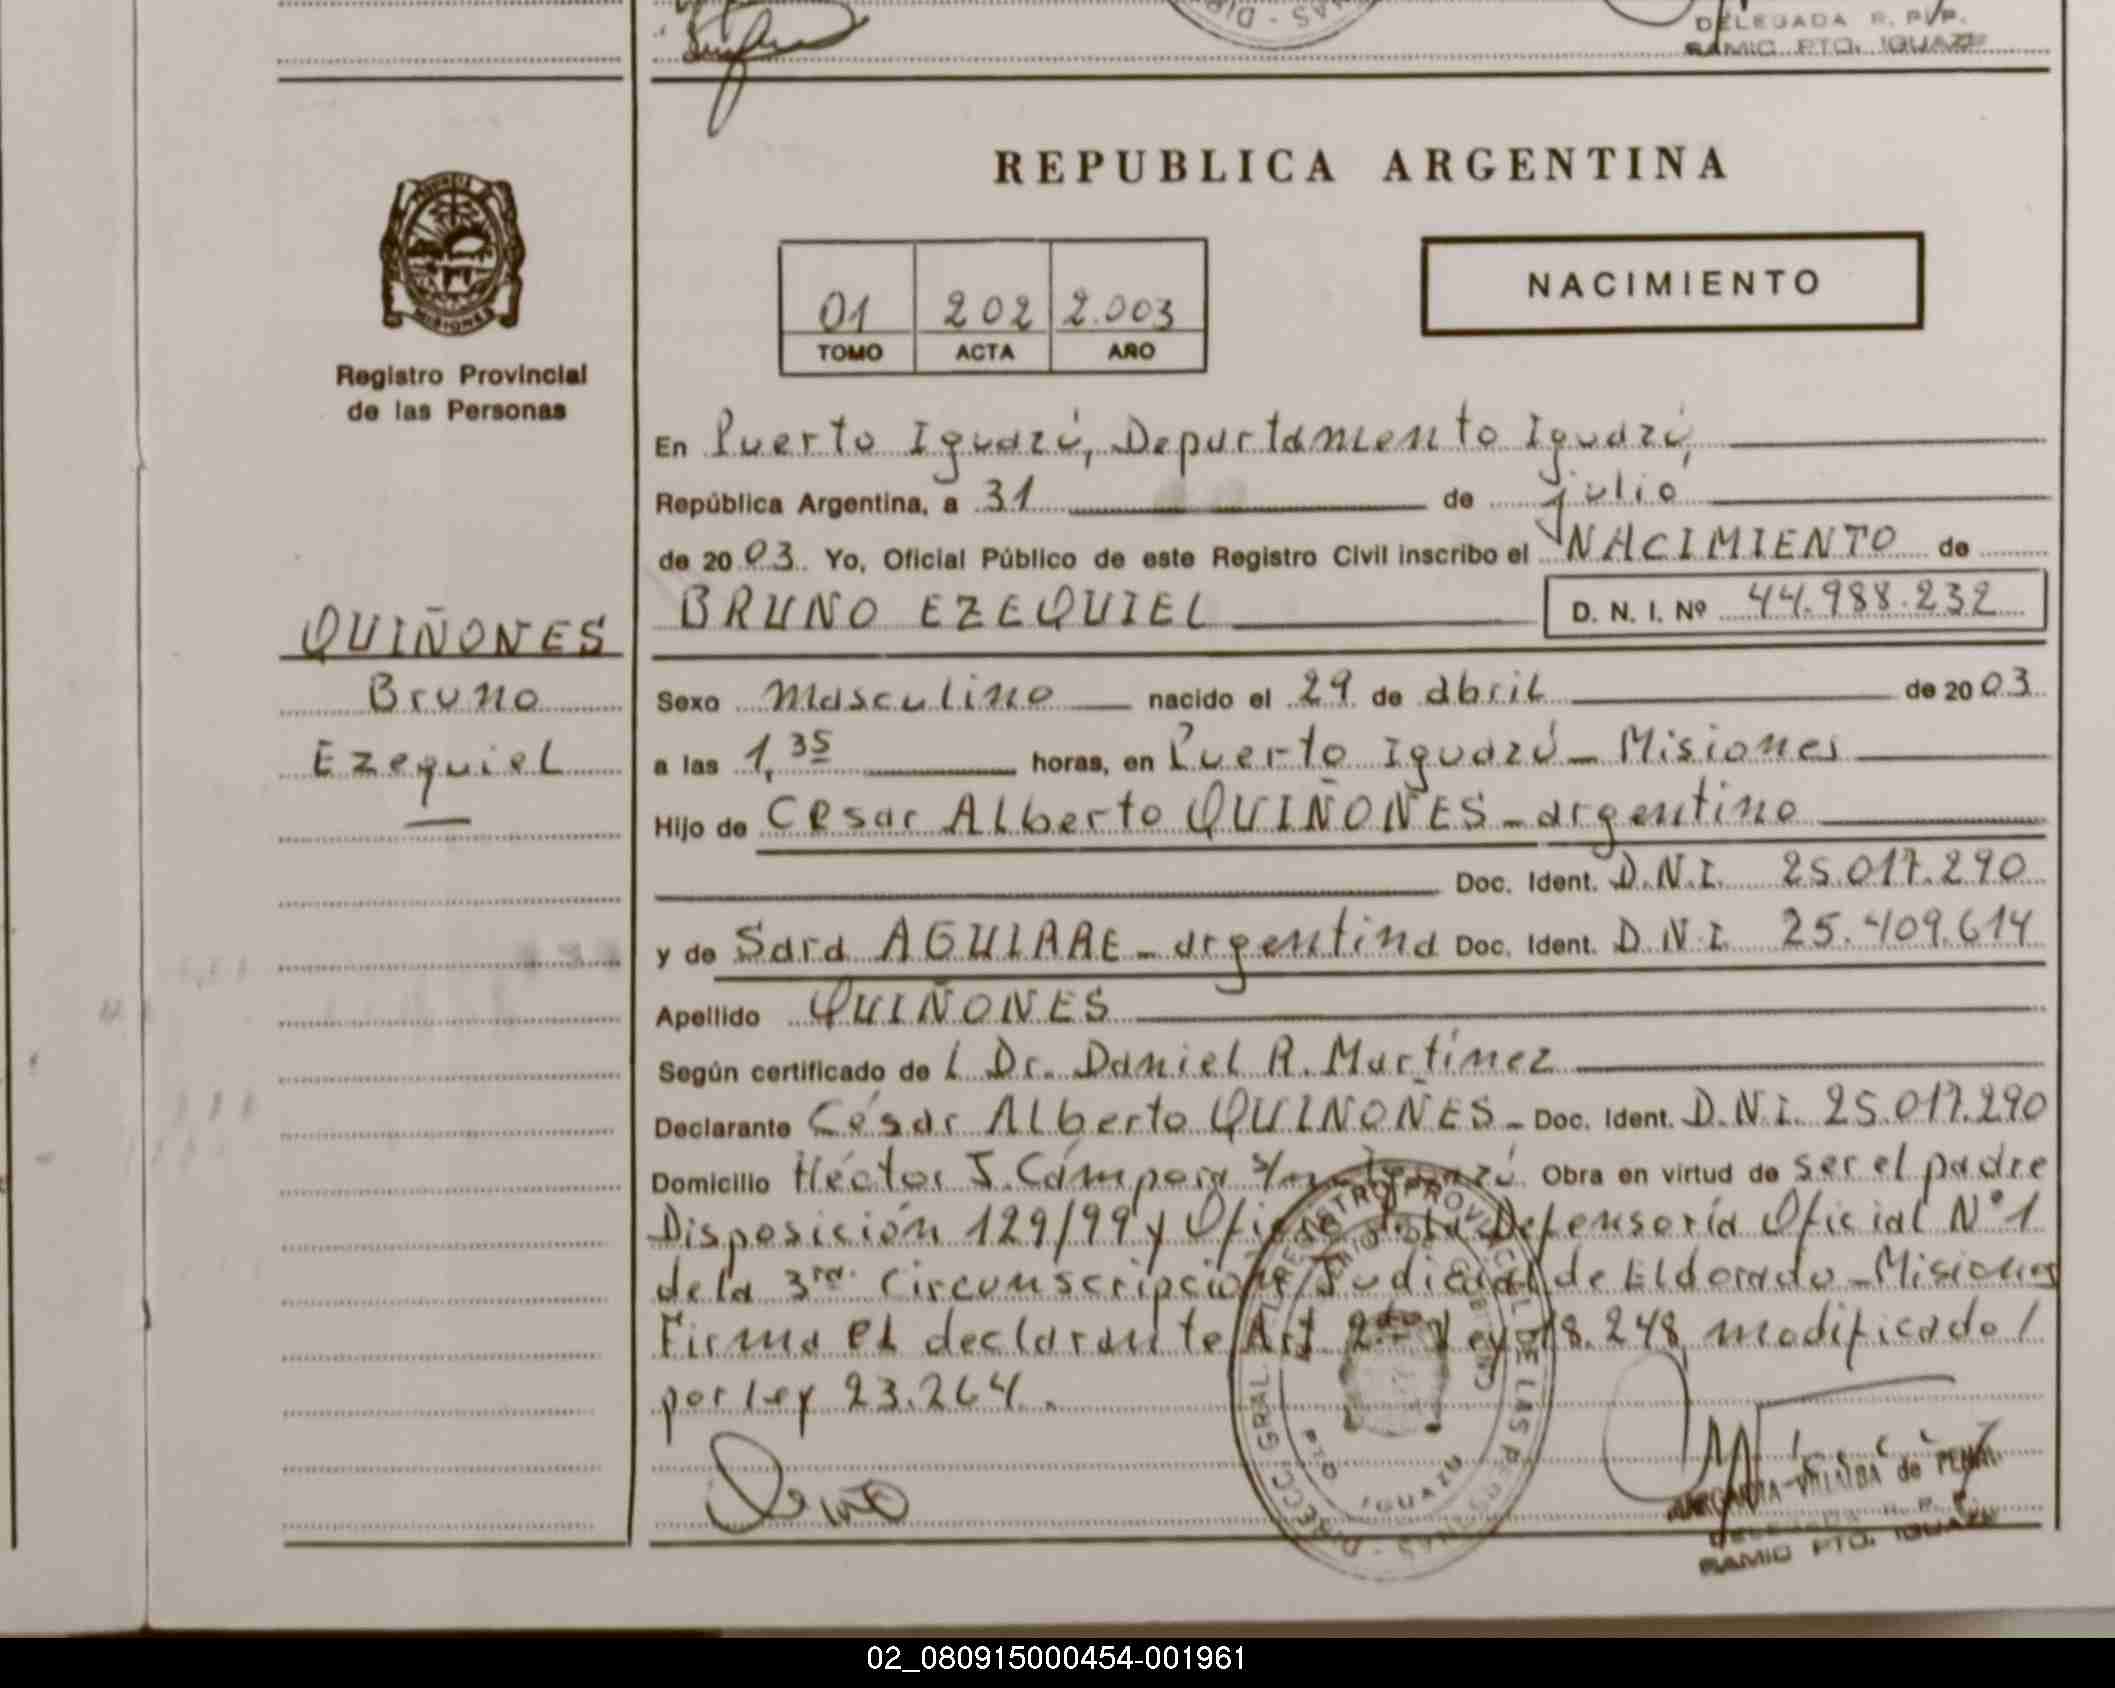 DELEGADA R. P. P.
RAMIC PTO. IGUAZU
REPUBLICA ARGENTINA
MISIONES
Registro Provincial
de las Personas
01 202 2.003
TOMO ACTA AÑO
NACIMIENTO
En Puerto Iguazú, Departamento Iguazú,
República Argentina, a 31 de julio
de 2003. Yo, Oficial Público de este Registro Civil inscribo el NACIMIENTO de
BRUNO EZEQUIEL D. N. I. Nº 44.988.232
QUIÑONES
Bruno
Ezequiel
Sexo masculino nacido el 29 de abril de 2003
a las 1,35 horas, en Puerto Iguazú - Misiones
Hijo de César Alberto QUIÑONES - argentino
Doc. Ident. D.N.I. 25.017.290
y de Sara AGUIRRE - argentina Doc. Ident. D.N.I. 25.409.614
Apellido QUIÑONES
Según certificado del Dr. Daniel R. Martínez
Declarante César Alberto QUIÑONES - Doc. Ident. D.N.I. 25.017.290
Domicilio Héctor J. Cámpora s/n Iguazú Obra en virtud de ser el padre
Disposición 129/99 y Oficio de la Defensoría Oficial N°1
de la 3ra. Circunscripción Judicial de Eldorado - Misiones
Firma el declarante Art. 2do Ley 18.248 modificado /
por ley 23.264.
DIRECC. GRAL. REGISTRO PROVINCIAL DE LAS PERSONAS
PTO IGUAZU
MARGARITA VILLALBA de
DELEGADA R. P. P.
RAMIC PTO. IGUAZU
02_080915000454-001961